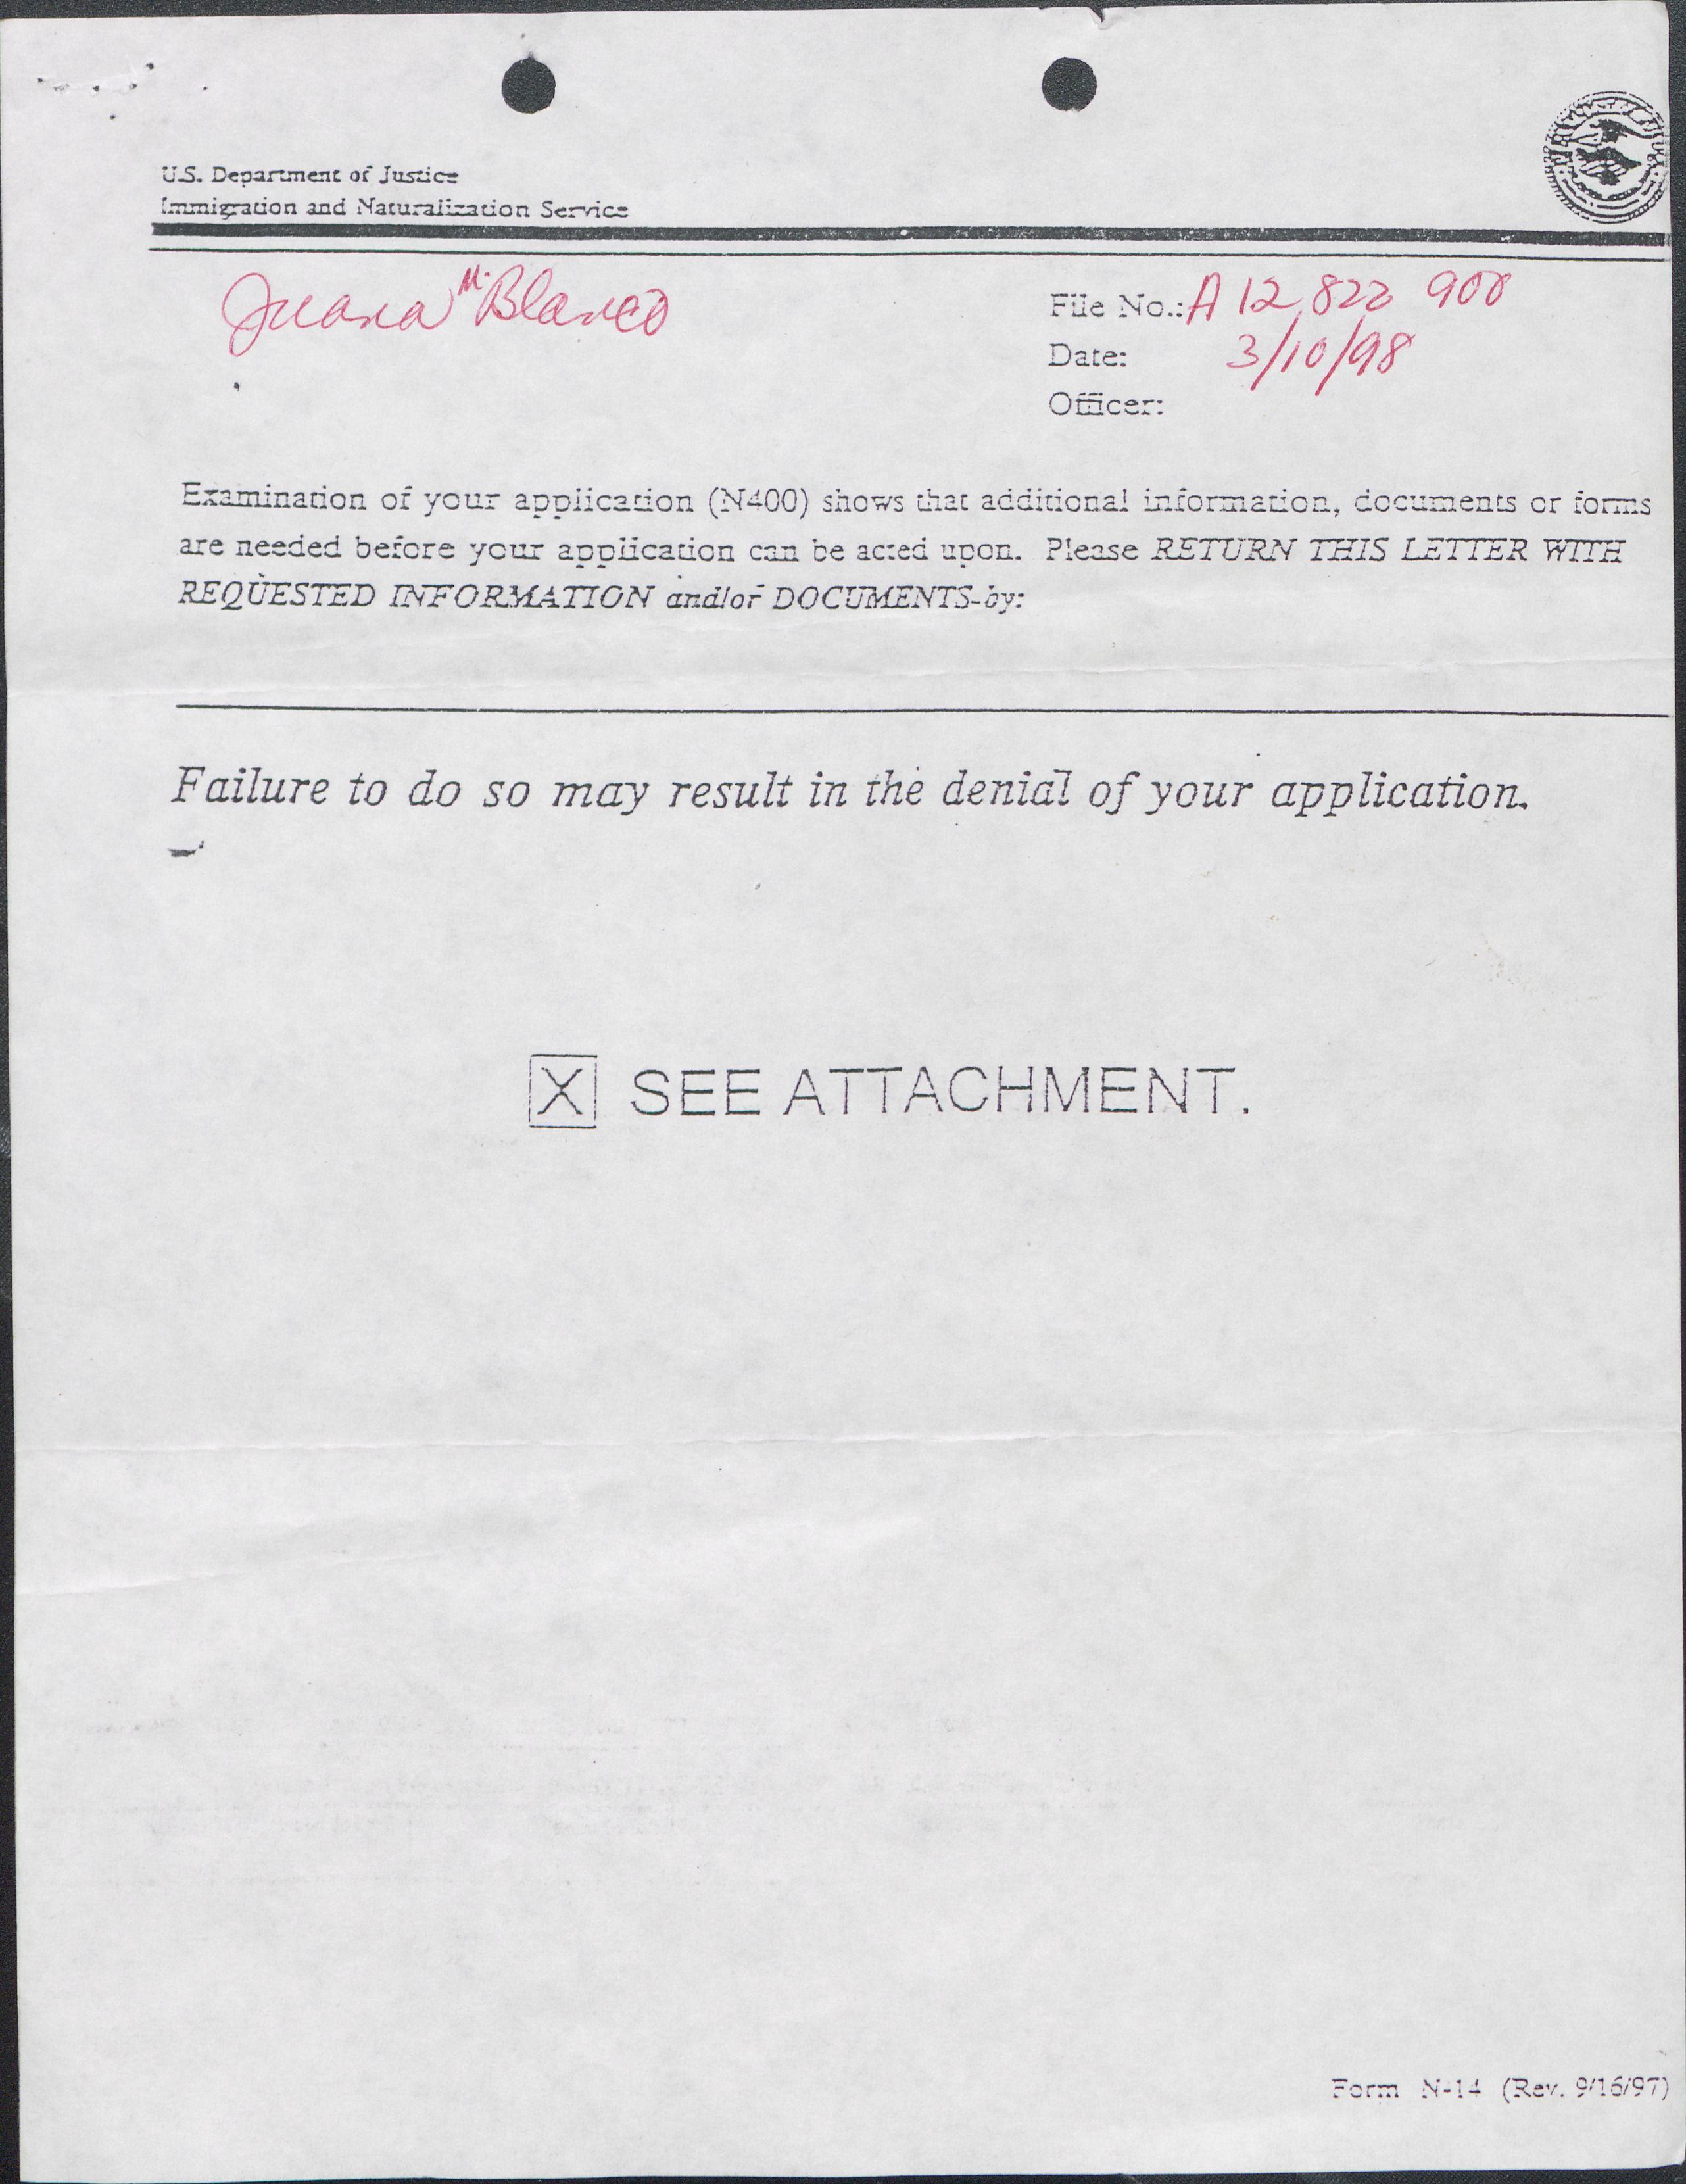 U.S. Department of Justice
Immigration and Naturalization Service
Juana M. Blanco
File No.: A 12 822 900
Date: 3/10/98
Officer:
Examination of your application (N400) shows that additional information, documents or forms
are needed before your application can be acted upon. Please RETURN THIS LETTER WITH
REQUESTED INFORMATION and/or DOCUMENTS by:
Failure to do so may result in the denial of your application.
X SEE ATTACHMENT.
Form N-14 (Rev. 9/16/97)